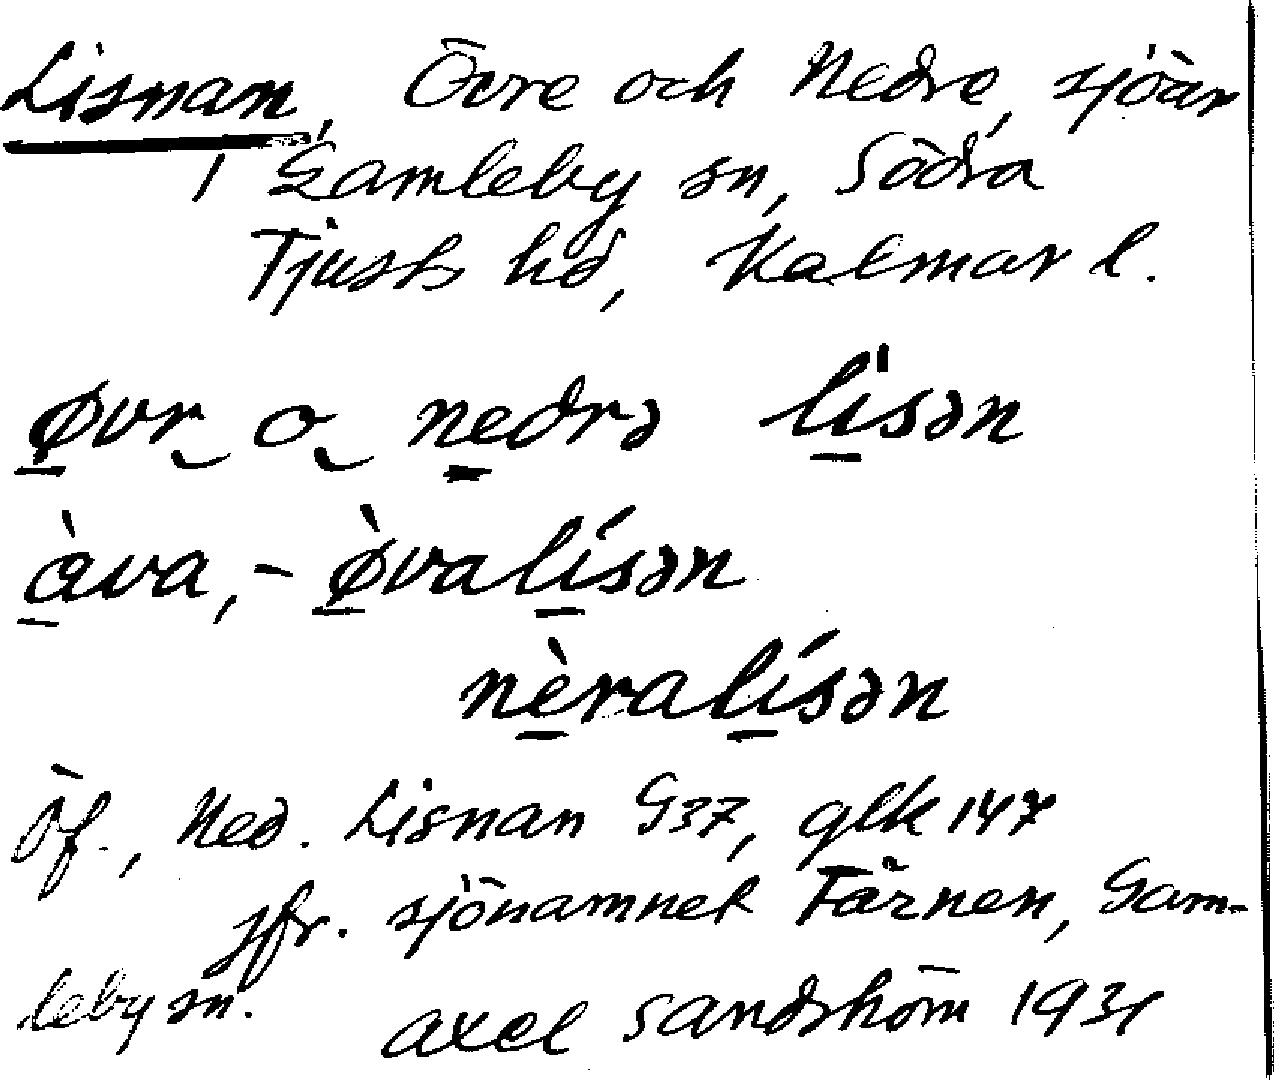 Lisnan, Övre och Nedre, sjöar
i Gamleby sn, Södra
Tjusts hd, Kalmar l.
øvr o nedrə lísən
àva,- øvalísən
nèralísən
Öf., Ned. Lisnan G37, glk 147
jfr. sjönamnet Tärnen, Gam-
leby sn.
Axel Sandström 1931